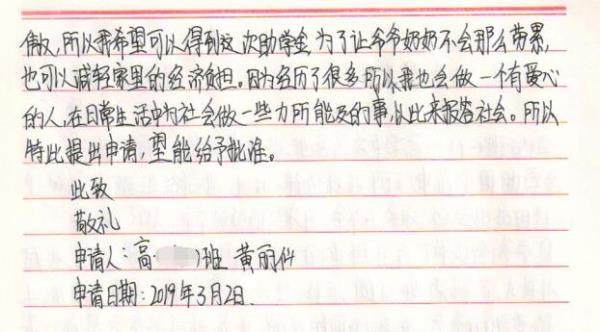 傲,所以我希望可以得到这次助学金为了让爷爷奶奶不会那么劳累,
也可以减轻家里的经济负担。因为经历了很多所以我也会做一个有爱心
的人,在日常生活中为社会做一些力所能及的事,以此来报答社会。所以
特此提出申请,望能给予批准。
此致
敬礼
申请人:高 班 黄丽
申请日期:2019年3月2日.